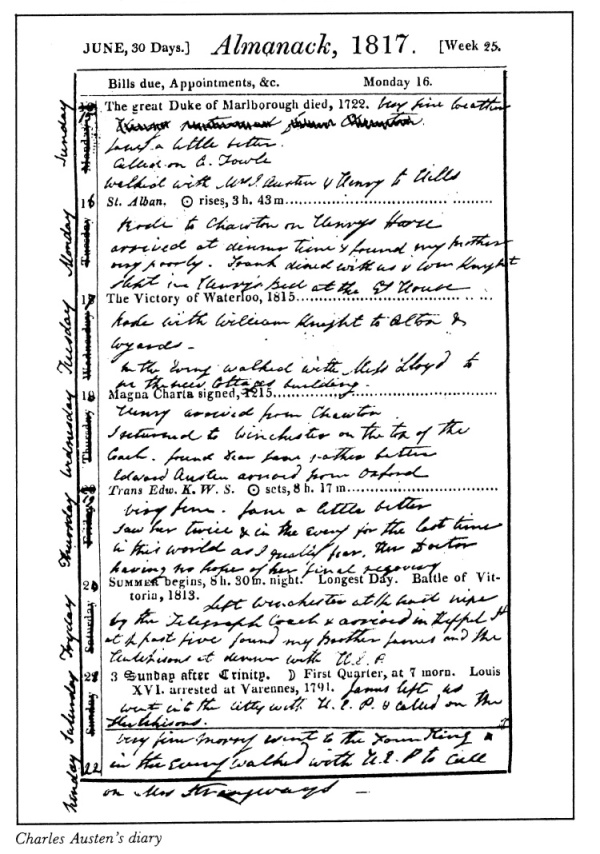 JUNE, 30 Days.] Almanack, 1817. [Week 25.
Bills due, Appointments, &c. Monday 16.
Sunday
Monday
The great Duke of Marlborough died, 1722. Very fine weather
Jane a little better.
Called on C. Fowle
Walked with Mrs J. Austen & Henry to Hills
Monday
Tuesday
St. Alban. ☉ rises, 3 h. 43 m.
Rode to Chawton on Henrys Horse
arrived at dinner time & found my Mother
very poorly. Frank dined with us & Wm Knight
Slept in Henry's Bed at the Gt House
Tuesday
Wednesday
17 The Victory of Waterloo, 1815
Rode with William Knight to Alton &
Wyards.
In the Eveng walked with Miss Lloyd to
see the new Cottages building.
Wednesday
Thursday
18 Magna Charta signed, 1215
Henry arrived from Chawton
I returned to Winchester on the top of the
Coach. found Dear Jane rather better
Edward Austen arrived from Oxford
Thursday
Friday
Trans Edw. K. W. S. ☉ sets, 8 h. 17 m.
Very fine. Jane a little better
Saw her twice & in the Eveng for the last time
in this world as I greatly fear, the Doctor
having no hope of her final recovery
Fryday
Saturday
20 SUMMER begins, 8 h. 30 m. night. Longest Day. Battle of Vit-
toria, 1813.
Left Winchester at 1/2 past nine
by the Telegraph Coach & arrived in Keppel St
at 1/2 past five found my Brother James and the
Hutchisons at dinner with H. E. P.
Saturday
Sunday
21 3 Sunday after Trinity. ☽ First Quarter, at 7 morn. Louis
XVI. arrested at Varennes, 1791. James left us
went into the City with H. E. P. & called on the
Hutchisons.
Monday
22
Very fine Morng went to the
in the Eveng walked with H. E. P to call
on Mrs Strangways
Charles Austen's diary